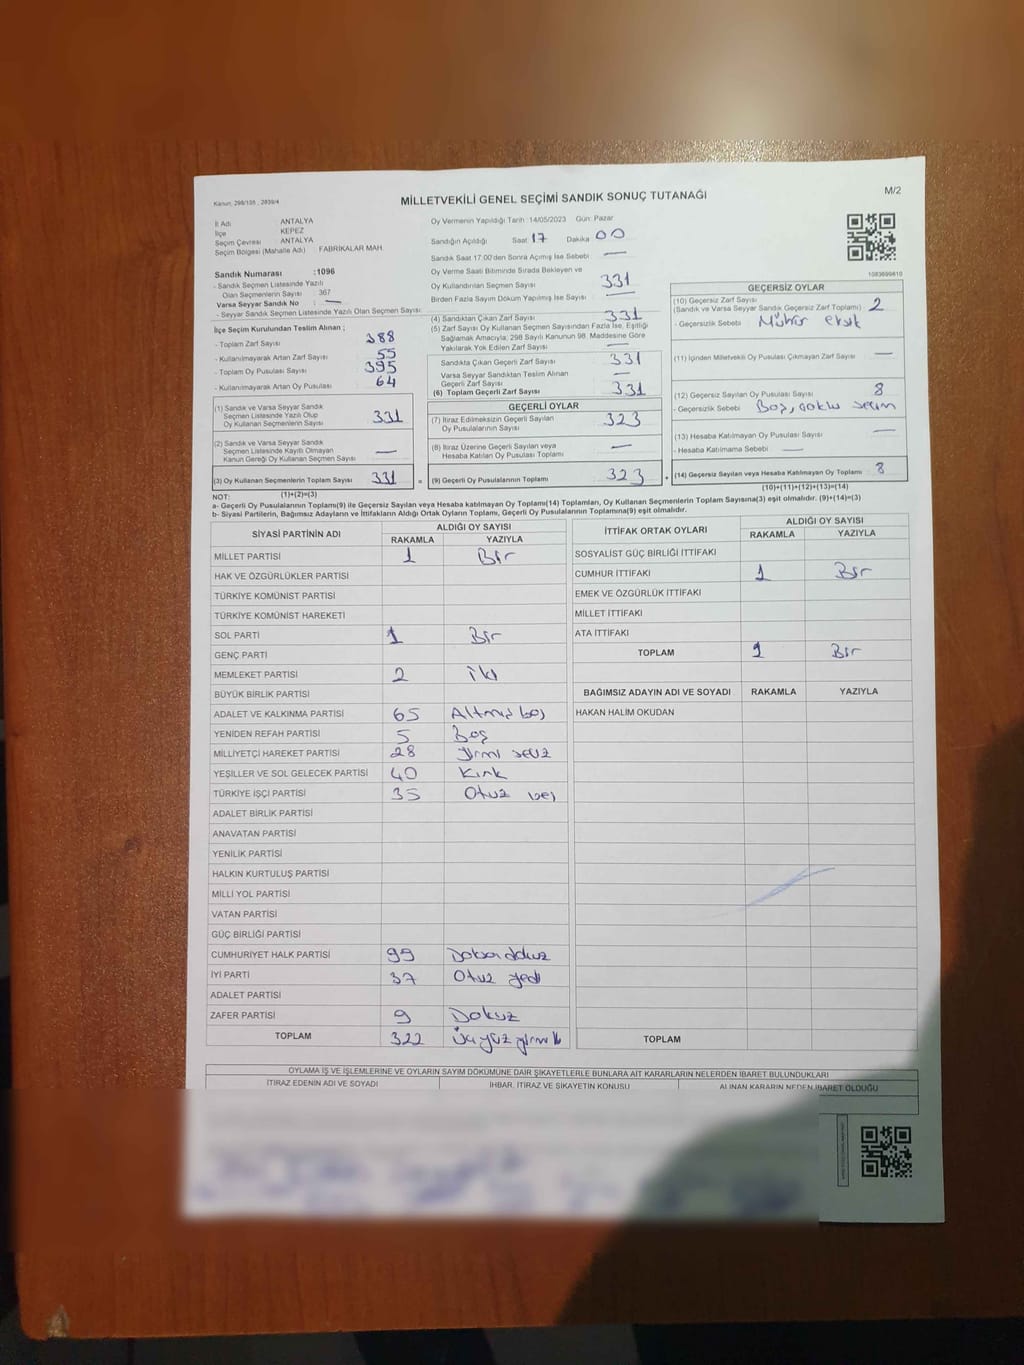 Kanun, 298/105 , 2839/4
MİLLETVEKİLİ GENEL SEÇİMİ SANDIK SONUÇ TUTANAĞI
M/2
İl Adı ANTALYA
İlçe KEPEZ
Seçim Çevresi ANTALYA
Seçim Bölgesi (Mahalle Adı) FABRİKALAR MAH.
Sandık Numarası :1096
- Sandık Seçmen Listesinde Yazılı
Olan Seçmenlerin Sayısı : 367
Varsa Seyyar Sandık No : —
- Seyyar Sandık Seçmen Listesinde Yazılı Olan Seçmen Sayısı:
İlçe Seçim Kurulundan Teslim Alınan ;
- Toplam Zarf Sayısı 388
- Kullanılmayarak Artan Zarf Sayısı 55
- Toplam Oy Pusulası Sayısı 395
- Kullanılmayarak Artan Oy Pusulası 64
(1) Sandık ve Varsa Seyyar Sandık
Seçmen Listesinde Yazılı Olup
Oy Kullanan Seçmenlerin Sayısı 331
(2) Sandık ve Varsa Seyyar Sandık
Seçmen Listesinde Kayıtlı Olmayan
Kanun Gereği Oy Kullanan Seçmen Sayısı —
(3) Oy Kullanan Seçmenlerin Toplam Sayısı 331
(1)+(2)=(3)
Oy Vermenin Yapıldığı Tarih :14/05/2023 Gün: Pazar
Sandığın Açıldığı Saat 17 Dakika 00
Sandık Saat 17.00'den Sonra Açılmış İse Sebebi —
Oy Verme Saati Bitiminde Sırada Bekleyen ve
Oy Kullandırılan Seçmen Sayısı 331
Birden Fazla Sayım Döküm Yapılmış İse Sayısı —
(4) Sandıktan Çıkan Zarf Sayısı 331
(5) Zarf Sayısı Oy Kullanan Seçmen Sayısından Fazla İse, Eşitliği
Sağlamak Amacıyla, 298 Sayılı Kanunun 98. Maddesine Göre
Yakılarak Yok Edilen Zarf Sayısı —
Sandıkta Çıkan Geçerli Zarf Sayısı 331
Varsa Seyyar Sandıktan Teslim Alınan
Geçerli Zarf Sayısı —
(6) Toplam Geçerli Zarf Sayısı 331
GEÇERLİ OYLAR
(7) İtiraz Edilmeksizin Geçerli Sayılan
Oy Pusulalarının Sayısı 323
(8) İtiraz Üzerine Geçerli Sayılan veya
Hesaba Katılan Oy Pusulası Toplamı —
= (9) Geçerli Oy Pusulalarının Toplamı 323 +
1083699810
GEÇERSİZ OYLAR
(10) Geçersiz Zarf Sayısı
(Sandık ve Varsa Seyyar Sandık Geçersiz Zarf Toplamı) 2
- Geçersizlik Sebebi : Mühür eksik
(11) İçinden Milletvekili Oy Pusulası Çıkmayan Zarf Sayısı —
(12) Geçersiz Sayılan Oy Pusulası Sayısı 8
- Geçersizlik Sebebi Boş, seçim
(13) Hesaba Katılmayan Oy Pusulası Sayısı —
- Hesaba Katılmama Sebebi —
(14) Geçersiz Sayılan veya Hesaba Katılmayan Oy Toplamı 8
(10)+(11)+(12)+(13)=(14)
NOT:
a- Geçerli Oy Pusulalarının Toplamı(9) ile Geçersiz Sayılan veya Hesaba katılmayan Oy Toplamı(14) Toplamları, Oy Kullanan Seçmenlerin Toplam Sayısına(3) eşit olmalıdır. (9)+(14)=(3)
b- Siyasi Partilerin, Bağımsız Adayların ve İttifakların Aldığı Ortak Oyların Toplamı, Geçerli Oy Pusulalarının Toplamına(9) eşit olmalıdır.
SİYASİ PARTİNİN ADI ALDIĞI OY SAYISI
RAKAMLA YAZIYLA
MİLLET PARTİSİ 1 Bir
HAK VE ÖZGÜRLÜKLER PARTİSİ
TÜRKİYE KOMÜNİST PARTİSİ
TÜRKİYE KOMÜNİST HAREKETİ
SOL PARTİ 1 Bir
GENÇ PARTİ
MEMLEKET PARTİSİ 2 iki
BÜYÜK BİRLİK PARTİSİ
ADALET VE KALKINMA PARTİSİ 65 Altmış beş
YENİDEN REFAH PARTİSİ 5 Beş
MİLLİYETÇİ HAREKET PARTİSİ 28 Yirmi sekiz
YEŞİLLER VE SOL GELECEK PARTİSİ 40 Kırk
TÜRKİYE İŞÇİ PARTİSİ 35 Otuz beş
ADALET BİRLİK PARTİSİ
ANAVATAN PARTİSİ
YENİLİK PARTİSİ
HALKIN KURTULUŞ PARTİSİ
MİLLİ YOL PARTİSİ
VATAN PARTİSİ
GÜÇ BİRLİĞİ PARTİSİ
CUMHURİYET HALK PARTİSİ 99 Doksan dokuz
İYİ PARTİ 37 Otuz yedi
ADALET PARTİSİ
ZAFER PARTİSİ 9 Dokuz
TOPLAM 322 Üç yüz yirmi
İTTİFAK ORTAK OYLARI ALDIĞI OY SAYISI
RAKAMLA YAZIYLA
SOSYALİST GÜÇ BİRLİĞİ İTTİFAKI
CUMHUR İTTİFAKI 1 Bir
EMEK VE ÖZGÜRLÜK İTTİFAKI
MİLLET İTTİFAKI
ATA İTTİFAKI
TOPLAM 1 Bir
BAĞIMSIZ ADAYIN ADI VE SOYADI RAKAMLA YAZIYLA
HAKAN HALİM OKUDAN
TOPLAM
OYLAMA İŞ VE İŞLEMLERİNE VE OYLARIN SAYIM DÖKÜMÜNE DAİR ŞİKAYETLERLE BUNLARA AİT KARARLARIN NELERDEN İBARET BULUNDUKLARI
İTİRAZ EDENİN ADI VE SOYADI İHBAR, İTİRAZ VE ŞİKAYETİN KONUSU ALINAN KARARIN NEDEN İBARET OLDUĞU